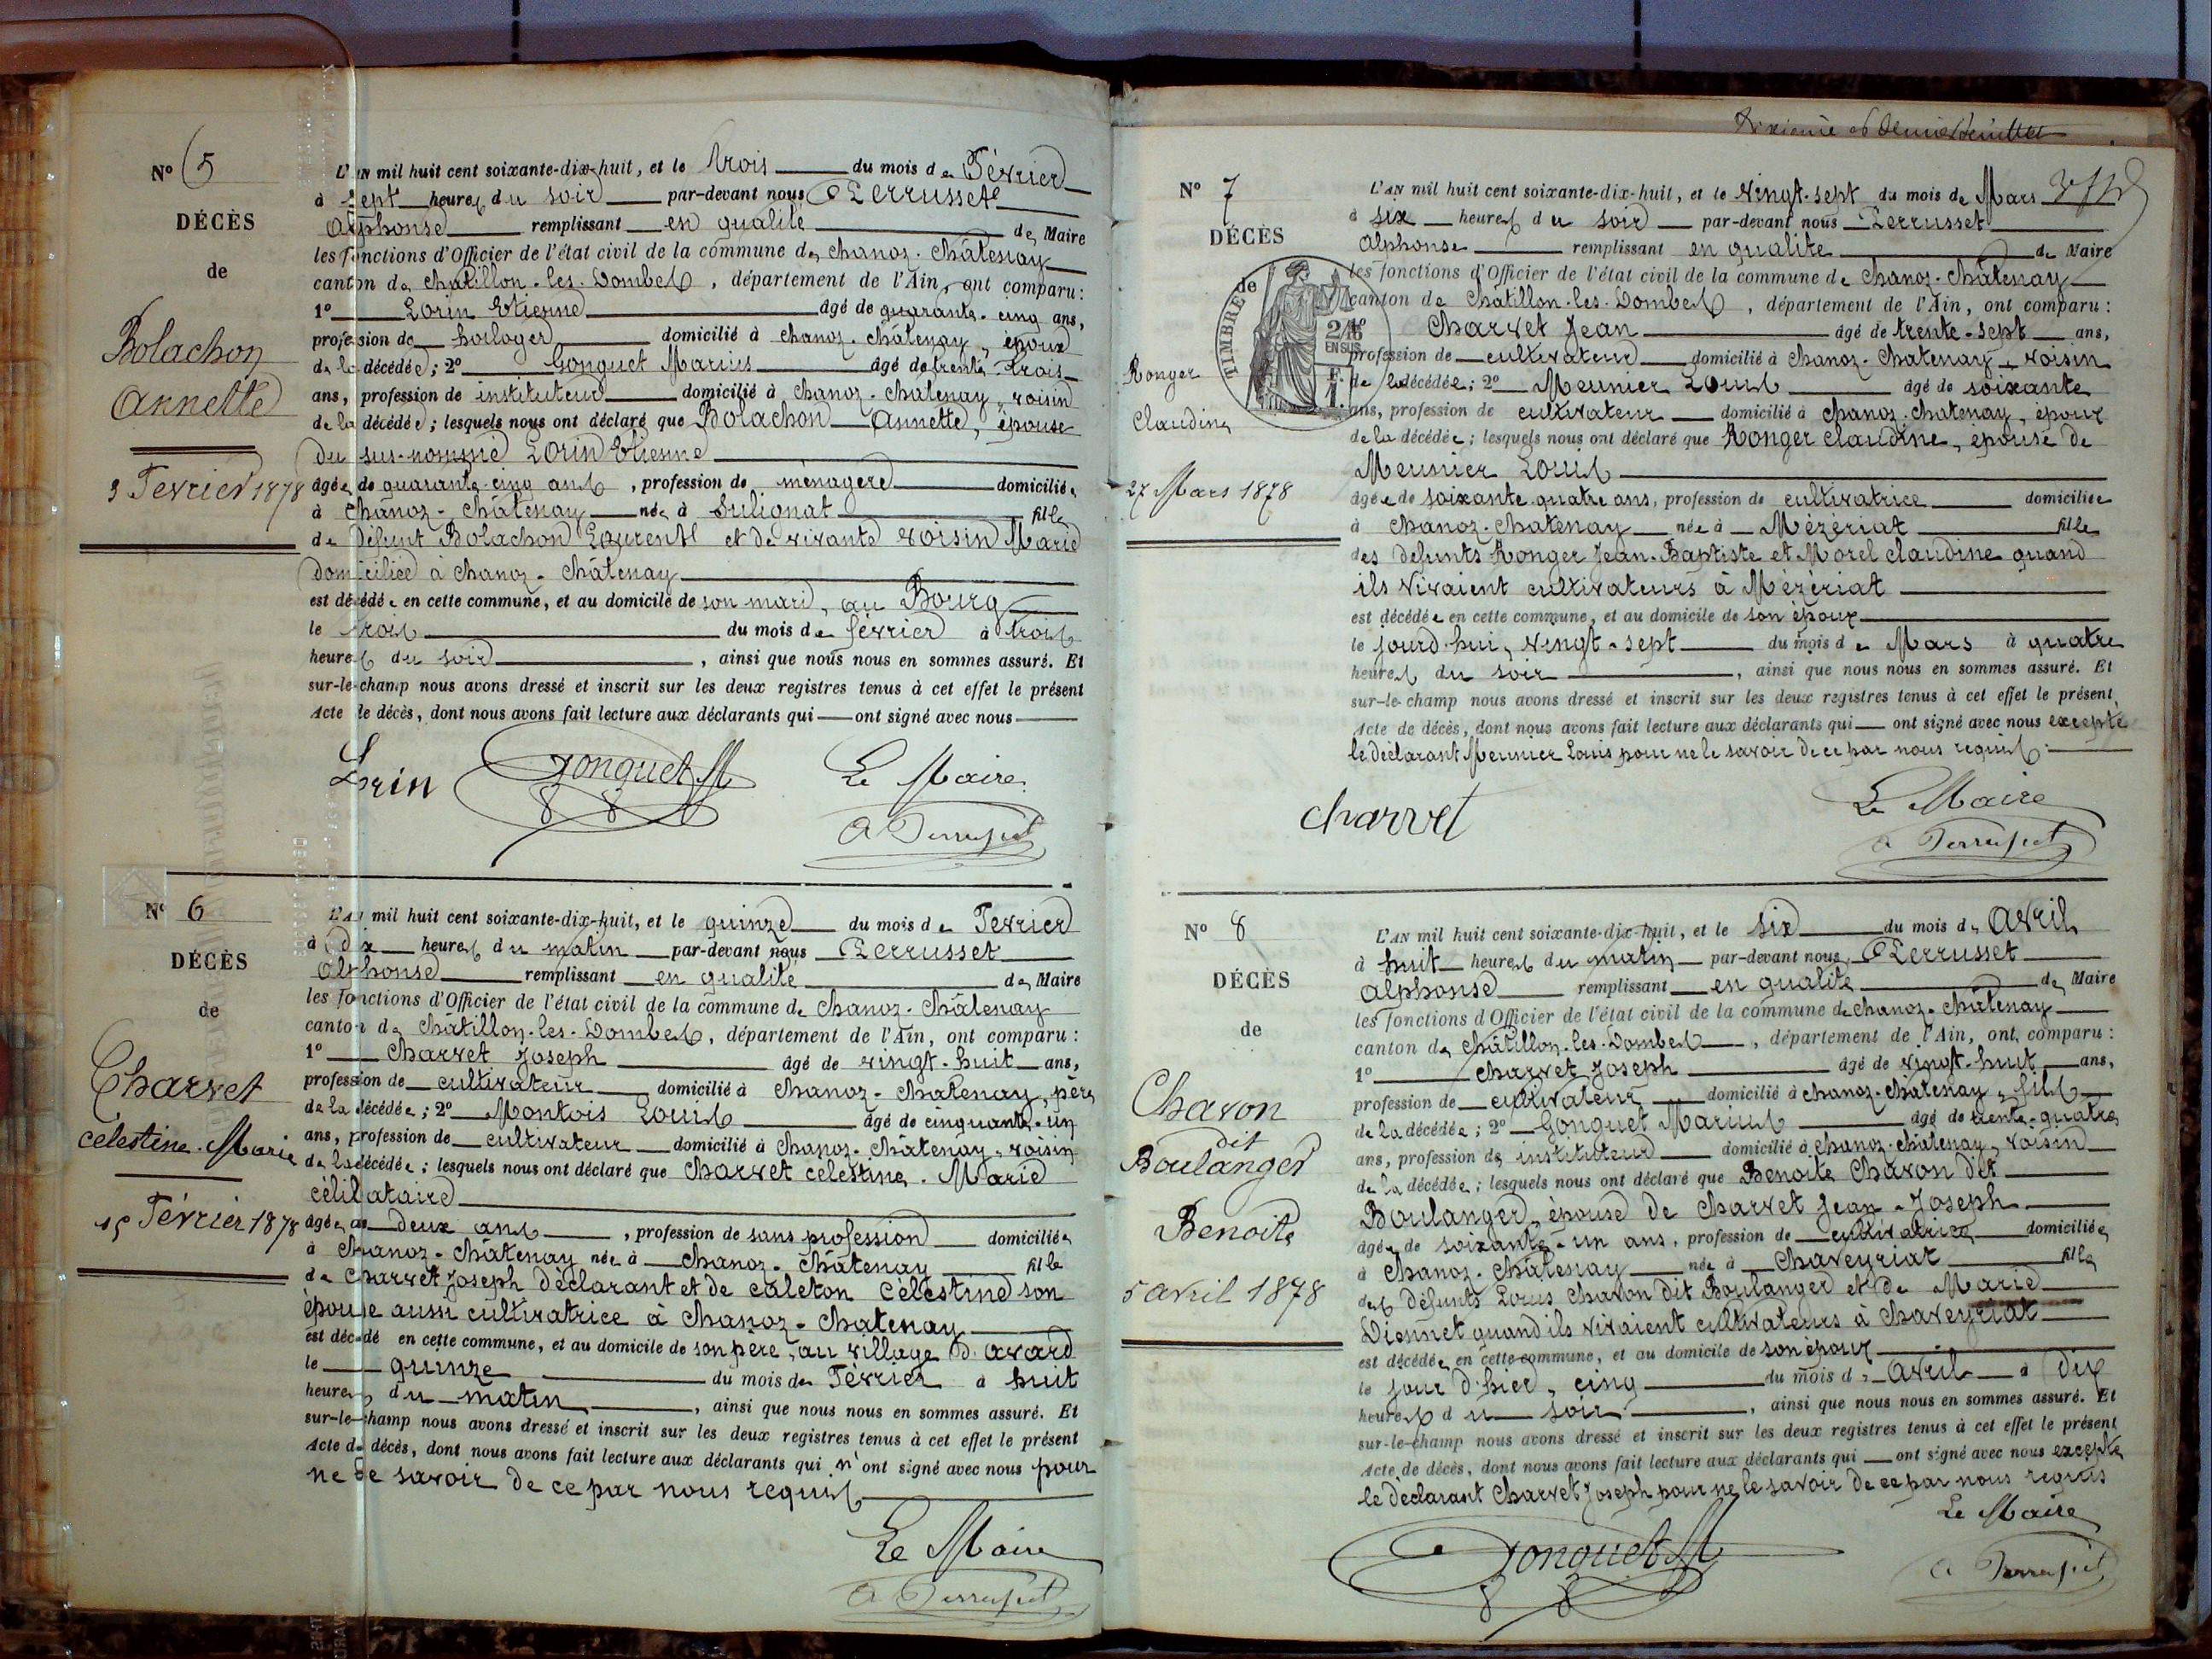 Nº 5
DÉCÈS
de
Bolachon
Annette
3 Février 1878
L'AN mil huit cent soixante-dix-huit, et le trois du mois de Février
à sept heures du soir par-devant nous Perrusset
Alphonse remplissant en qualité de Maire
les fonctions d'Officier de l'état civil de la commune de Chanoz-Châtenay
canton de Châtillon-les-Dombes, département de l'Ain, ont comparu :
1º Lorin Etienne âgé de quarante-cinq ans,
profession de horloger domicilié à Chanoz-Châtenay, époux
de la décédée; 2º Gonguet Marius âgé de trente-trois
ans, profession de instituteur domicilié à Chanoz-Châtenay, voisin
de la décédée; lesquels nous ont déclaré que Bolachon Annette, épouse
du sus-nommé Lorin Etienne
âgée de quarante-cinq ans, profession de ménagère domiciliée
à Chanoz-Châtenay née à Sulignat fille
de défunt Bolachon Laurent et de vivante Voisin Marie
domiciliée à Chanoz-Châtenay
est décédée en cette commune, et au domicile de son mari, au Bourg
le trois du mois de février à trois
heures du soir, ainsi que nous nous en sommes assuré. Et
sur-le-champ nous avons dressé et inscrit sur les deux registres tenus à cet effet le présent
Acte de décès, dont nous avons fait lecture aux déclarants qui ont signé avec nous
Lorin Gonguet M Le Maire
A Perrusset
Nº 6
DÉCÈS
de
Charvet
Celestine-Marie
15 Février 1878
L'AN mil huit cent soixante-dix-huit, et le quinze du mois de Février
à dix heures du matin par-devant nous Perrusset
Alphonse remplissant en qualité de Maire
les fonctions d'Officier de l'état civil de la commune de Chanoz-Châtenay
canton de Châtillon-les-Dombes, département de l'Ain, ont comparu :
1º Charvet Joseph âgé de vingt-huit ans,
profession de cultivateur domicilié à Chanoz-Châtenay, père
de la décédée; 2º Montois Louis âgé de cinquante-un
ans, profession de cultivateur domicilié à Chanoz-Châtenay, voisin
de la décédée; lesquels nous ont déclaré que Charvet Celestine-Marie
célibataire
âgée de deux ans, profession de sans profession domiciliée
à Chanoz-Châtenay née à Chanoz-Châtenay fille
de Charvet Joseph déclarant et de Caleton Célestine son
épouse aussi cultivatrice à Chanoz-Chatenay
est décédé en cette commune, et au domicile de son père, au village d'Avard
le quinze du mois de Février à huit
heures du matin, ainsi que nous nous en sommes assuré. Et
sur-le-champ nous avons dressé et inscrit sur les deux registres tenus à cet effet le présent
Acte de décès, dont nous avons fait lecture aux déclarants qui n'ont signé avec nous pour
ne le savoir de ce par nous requis
Le Maire
A Perrusset
Nº 7
DÉCÈS
de
TIMBRE
EN SUS
Ronger
Claudine
27 Mars 1878
L'AN mil huit cent soixante-dix-huit, et le vingt-sept du mois de Mars
à six heures du soir par-devant nous Perrusset
Alphonse remplissant en qualité de Maire
les fonctions d'Officier de l'état civil de la commune de Chanoz-Châtenay
canton de Châtillon-les-Dombes, département de l'Ain, ont comparu :
1º Charvet Jean âgé de trente-sept ans,
profession de cultivateur domicilié à Chanoz-Chatenay, voisin
de la décédée; 2º Meunier Louis âgé de soixante
ans, profession de cultivateur domicilié à Chanoz-Chatenay, époux
de la décédée; lesquels nous ont déclaré que Ronger Claudine, épouse de
Meunier Louis
âgée de soixante-quatre ans, profession de cultivatrice domiciliée
à Chanoz-Chatenay née à Mézériat fille
des défunts Ronger Jean-Baptiste et Morel Claudine quand
ils vivaient cultivateurs à Mézériat
est décédée en cette commune, et au domicile de son époux
le jourd'hui, vingt-sept du mois de Mars à quatre
heures du soir, ainsi que nous nous en sommes assuré. Et
sur-le-champ nous avons dressé et inscrit sur les deux registres tenus à cet effet le présent
Acte de décès, dont nous avons fait lecture aux déclarants qui ont signé avec nous excepté
le déclarant Meunier Louis pour ne le savoir de ce par nous requis
Charvet Le Maire
A Perrusset
Nº 8
DÉCÈS
de
Chavon
dit
Boulanger
Benoite
5 Avril 1878
L'AN mil huit cent soixante-dix-huit, et le six du mois de Avril
à huit heures du matin par-devant nous Perrusset
Alphonse remplissant en qualité de Maire
les fonctions d'Officier de l'état civil de la commune de Chanoz-Châtenay
canton de Châtillon-les-Dombes, département de l'Ain, ont comparu :
1º Charvet Joseph âgé de vingt-huit ans,
profession de cultivateur domicilié à Chanoz-Châtenay, fils
de la décédée; 2º Gonguet Marius âgé de trente-quatre
ans, profession de instituteur domicilié à Chanoz-Châtenay, voisin
de la décédée; lesquels nous ont déclaré que Benoite Chavon dit
Boulanger, épouse de Charvet Jean-Joseph
âgée de soixante-un ans, profession de cultivatrice domiciliée
à Chanoz-Châtenay née à Chaveyriat fille
des défunts Louis Chavon dit Boulanger et de Marie
Viennet quand ils vivaient cultivateurs à Chaveyriat
est décédée en cette commune, et au domicile de son époux
le jour d'hier, cinq du mois d'Avril à dix
heures du soir, ainsi que nous nous en sommes assuré. Et
sur-le-champ nous avons dressé et inscrit sur les deux registres tenus à cet effet le présent
Acte de décès, dont nous avons fait lecture aux déclarants qui ont signé avec nous excepté
le déclarant Charvet Joseph pour ne le savoir de ce par nous requis
Le Maire
Gonguet M A Perrusset